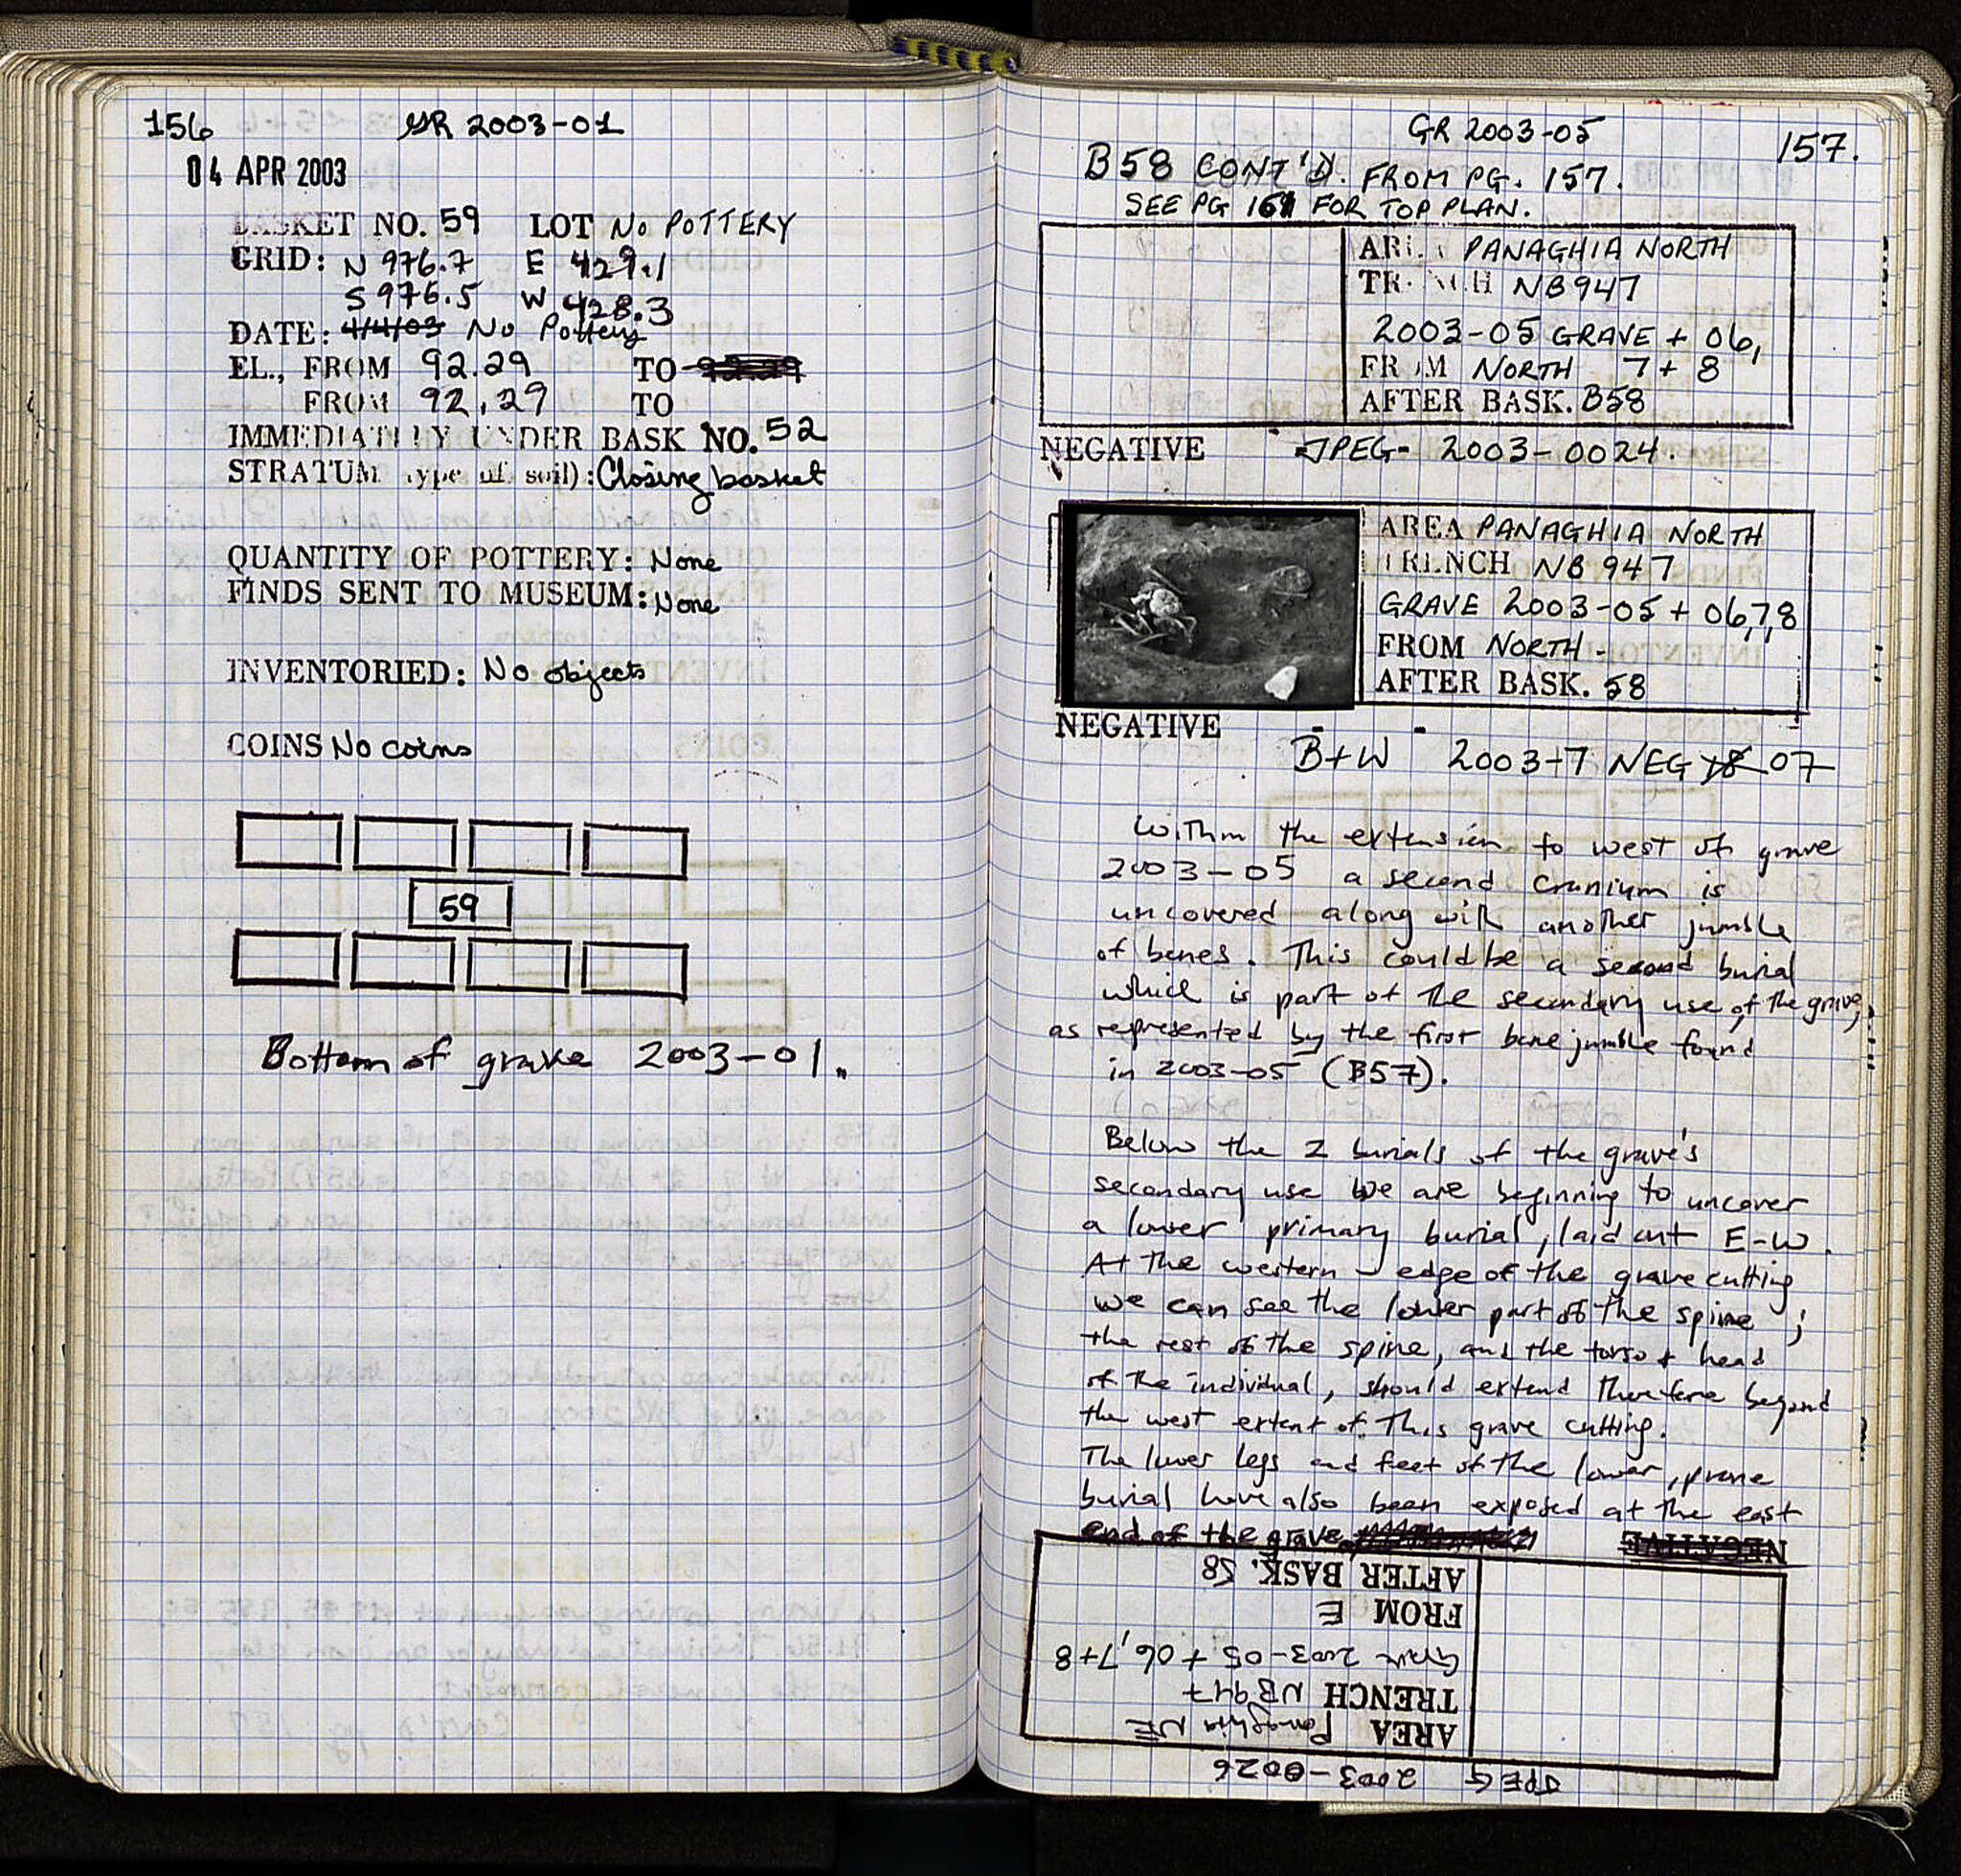 156 GR 2003-01
04 APR 2003
BASKET NO. 59 LOT No POTTERY
GRID: N 976.7 E 429.1
S 976.5 W 428.3
DATE: 4/4/03 No Pottery
EL., FROM 92.29 TO 92.29
FROM 92.29 TO
IMMEDIATELY UNDER BASK NO. 52
STRATUM (type of soil): Closing basket
QUANTITY OF POTTERY: None
FINDS SENT TO MUSEUM: None
INVENTORIED: No objects
COINS No coins
59
Bottom of grave 2003-01.
GR 2003-05 157.
B58 CONT'D. FROM PG. 157.
SEE PG 161 FOR TOP PLAN.
AREA PANAGHIA NORTH
TRENCH NB947
2003-05 GRAVE + 06,
FROM NORTH 7+8
AFTER BASK. B58
NEGATIVE JPEG- 2003-0024.
AREA PANAGHIA NORTH
TRENCH NB947
GRAVE 2003-05 + 06,7,8
FROM NORTH -
AFTER BASK. 58
NEGATIVE
B+W 2003-7 NEG 07
Within the extension to west of grave
2003-05 a second cranium is
uncovered along with another jumble
of bones. This could be a second burial
which is part of the secondary use of the grave,
as represented by the first bone jumble found
in 2003-05 (B57).
Below the 2 burials of the grave's
secondary use we are beginning to uncover
a lower primary burial, laid out E-W.
At the western edge of the grave cutting
we can see the lower part of the spine;
the rest of the spine, and the torso + head
of the individual, should extend therefore beyond
the west extent of this grave cutting.
The lower legs and feet of the lower, prone
burial have also been exposed at the east
end of the grave. NEGATIVE
JPEG 2003-0026
AREA Panaghia NE
TRENCH NB947
Grave 2003-05 + 06, 7+8
FROM E
AFTER BASK. 58